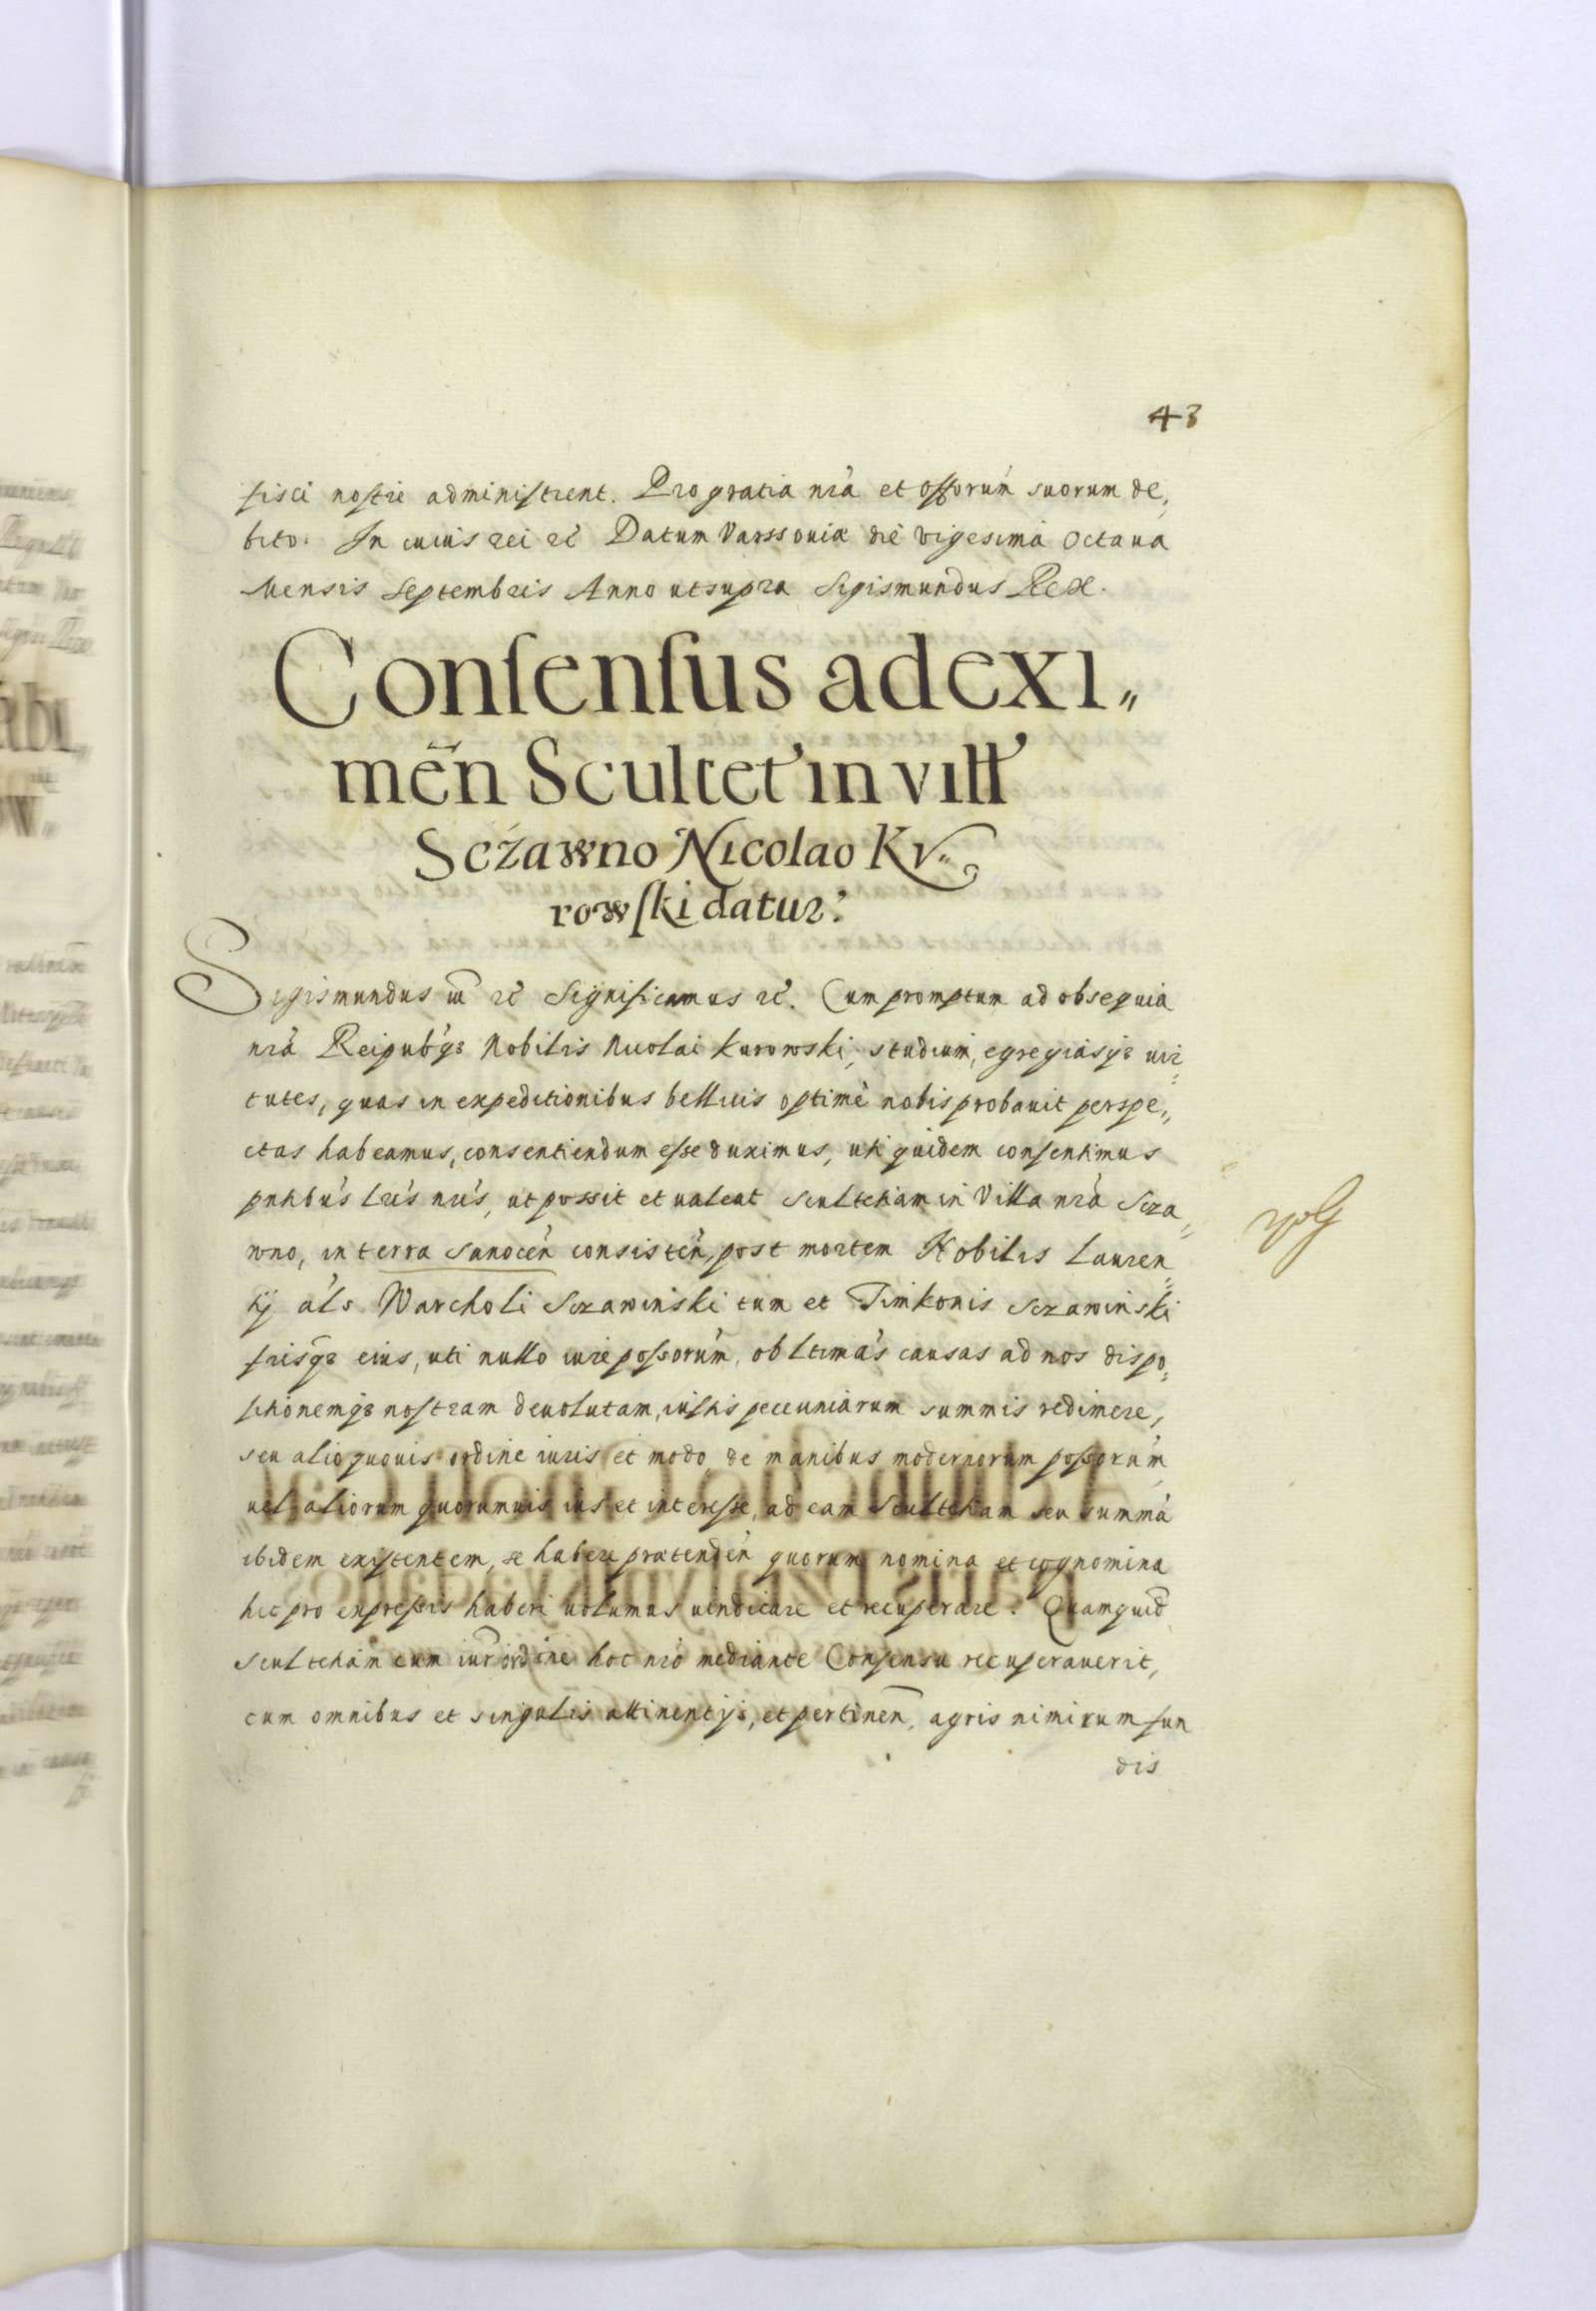 43
fisci nostri administrent. Pro gratia nrã et offorum̃ suorum de,
bito. In cuius rei ec̃ Datum Varssouiæ die vigesima Octaua
Mensis Septembris Anno ut supra Sigismundus Rex.
Consensus ad exi„
men̄ Scultet' in vill'
Sczawno Nicolao Ku„
rowski datur.
Sigismundus iii ec̃ Significamus ec̃. Cum promptum ad obsequia
nrã Reipub̃q3 Nobilis Nicolai Kurowski, studium, egregiasq3 vir„
tutes, quas in expeditionibus bellicis optimè nobis probauit perspe„
ctas habeamus, consentiendum esse duximus, uti quidem consentimus
pntibus̃ Lris̃ nris̃, ut possit et ualeat Scultetiam in Villa nrã Scza„
wno, in terra Sanocen̄ consisten̄, post mortem Nobilis Lauren„
tij als̃ Warcholi Sczawinski tum et Timkonis Sczawinski
fris̃q3 eius, uti nullo iure possorum̃, ob Ltimas̃ causas ad nos dispo„
sitionemq3 nostram deuolutam, iustis pecuniarum summis redimere,
seu alio quouis ordine iuris et modo, de manibus modernorum possorum̃
uel aliorum quorumuis ius et interesse, ad eam Scultetiam seu summã
ibidem existentem, se habere prætenden̄ quorum nomina et cognomina
hic pro expressis haberi uolumus uindicare et recuperare. Quamquid̃
Scultetiam cum iur̃ ordine hoc nrõ mediante Consensu recuperauerit,
cum omnibus et singulis attinentijs, et pertinen̄, agris nimirum fun
dis